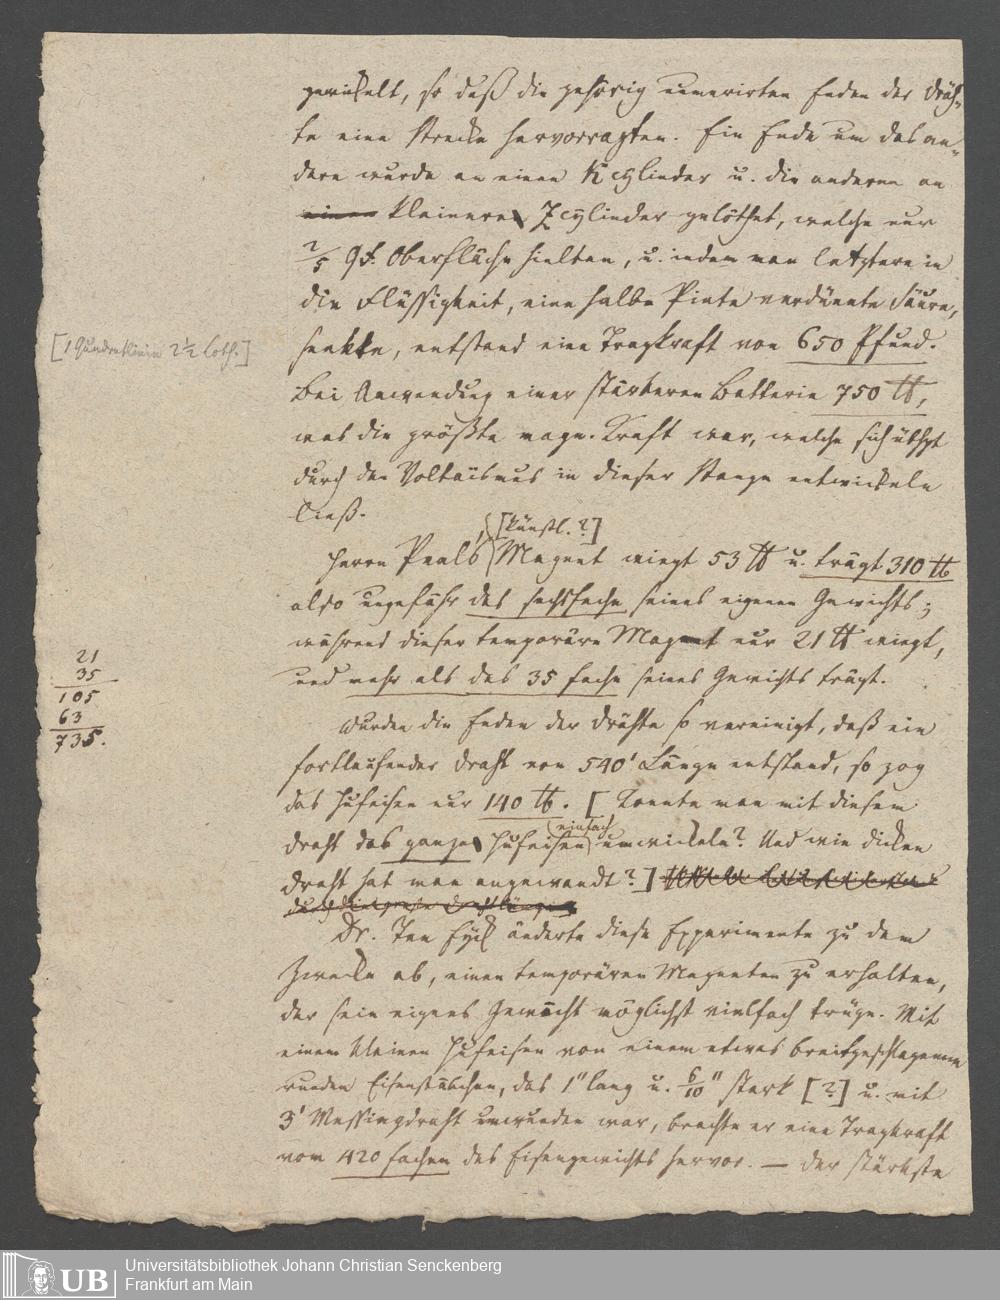 gewickelt, so daß die gehörig numerirten Enden der Dräh-
te eine Strecke hervorragten. Ein Ende um das an-
dere wurde an einen K cylinder u. die anderen an
einen kleineren Z cylinder gelöthet, welche nur
2/5 QF. Oberfläche hielten, u. indem man letztere in
die Flüssigkeit, eine halbe Pinte verdünnte Säure,
[1 2 1/2 Loth.]
senkte, entstand eine Tragkraft von 650 Pfund.
Bei Anwendung einer stärkeren Batterie 750 ℔,
was die größte magn. Kraft war, welche sich übhpt
durch den Voltaismus in dieser Stange entwickeln
ließ.
[künstl.?]
Herrn Peals Magnet wiegt 53 ℔ u. trägt 310 ℔
also ungefähr das sechsfache seines eigenen Gewichts;
während dieser temporäre Magnet nur 21 ℔ wiegt,
und mehr als das 35 fache seines Gewichts trägt.
21
35
105
63
735.
Wurden die Enden der Drähte so vereinigt, daß ein
fortlaufender Draht von 540' Länge entstand, so zog
das Hufeisen nur 140 ℔. [Konnte man mit diesem
einfach
Draht das ganze Hufeisen umwickeln? Und wie dicken
Draht hat man angewandt?]
Dr. Ten Eyck änderte diese Experimente zu dem
Zwecke ab, einen temporären Magneten zu erhalten,
der sein eigenes Gewicht möglichst vielfach trüge. Mit
einem kleinen Hufeisen von einem etwas breitgeschlagenen
runden Eisenstäbchen, das 1" lang u. 6/10" stark [?] u. mit
3' Messingdraht umwunden war, brachte er eine Tragkraft
vom 420 fachen des Eisengewichts hervor. — Der stärkste
Universitätsbibliothek Johann Christian Senckenberg
Frankfurt am Main
UB